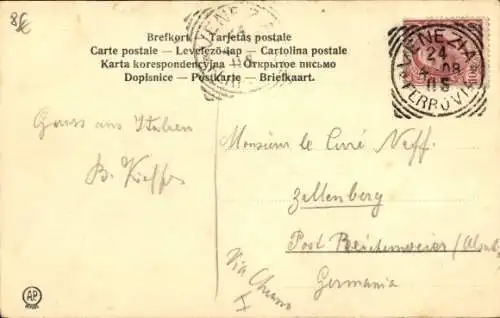 8€
Brefkort — Tarjetas postale
Carte postale — Levelező-lap — Cartolina postale
Karta korespondencyjna — Открытое письмо
Dopisnice — Postkarte — Briefkaart.
VENEZIA
24
08
11 S
FERROVIA
Gruss aus Italien
B. Kieffer
Monsieur le Curé Neff.
Zellenberg
Post Beichenweier
Germania
Via Chiasso
I
AP